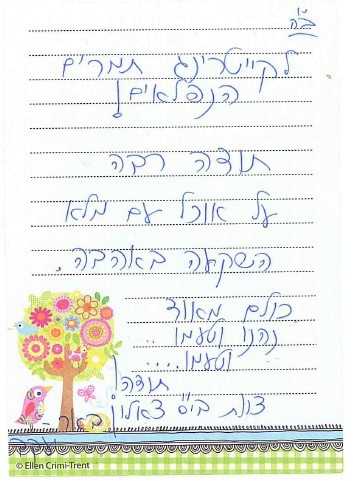 ב"ה
לקייטרינג תמרים
הנפלאים!
תודה רבה
על אוכל עם מלא
השקעה באהבה.
כולם מאוד
נהנו וטעמו..
וטעמו....
תודה!
צוות בי"ס
© Ellen Crimi-Trent